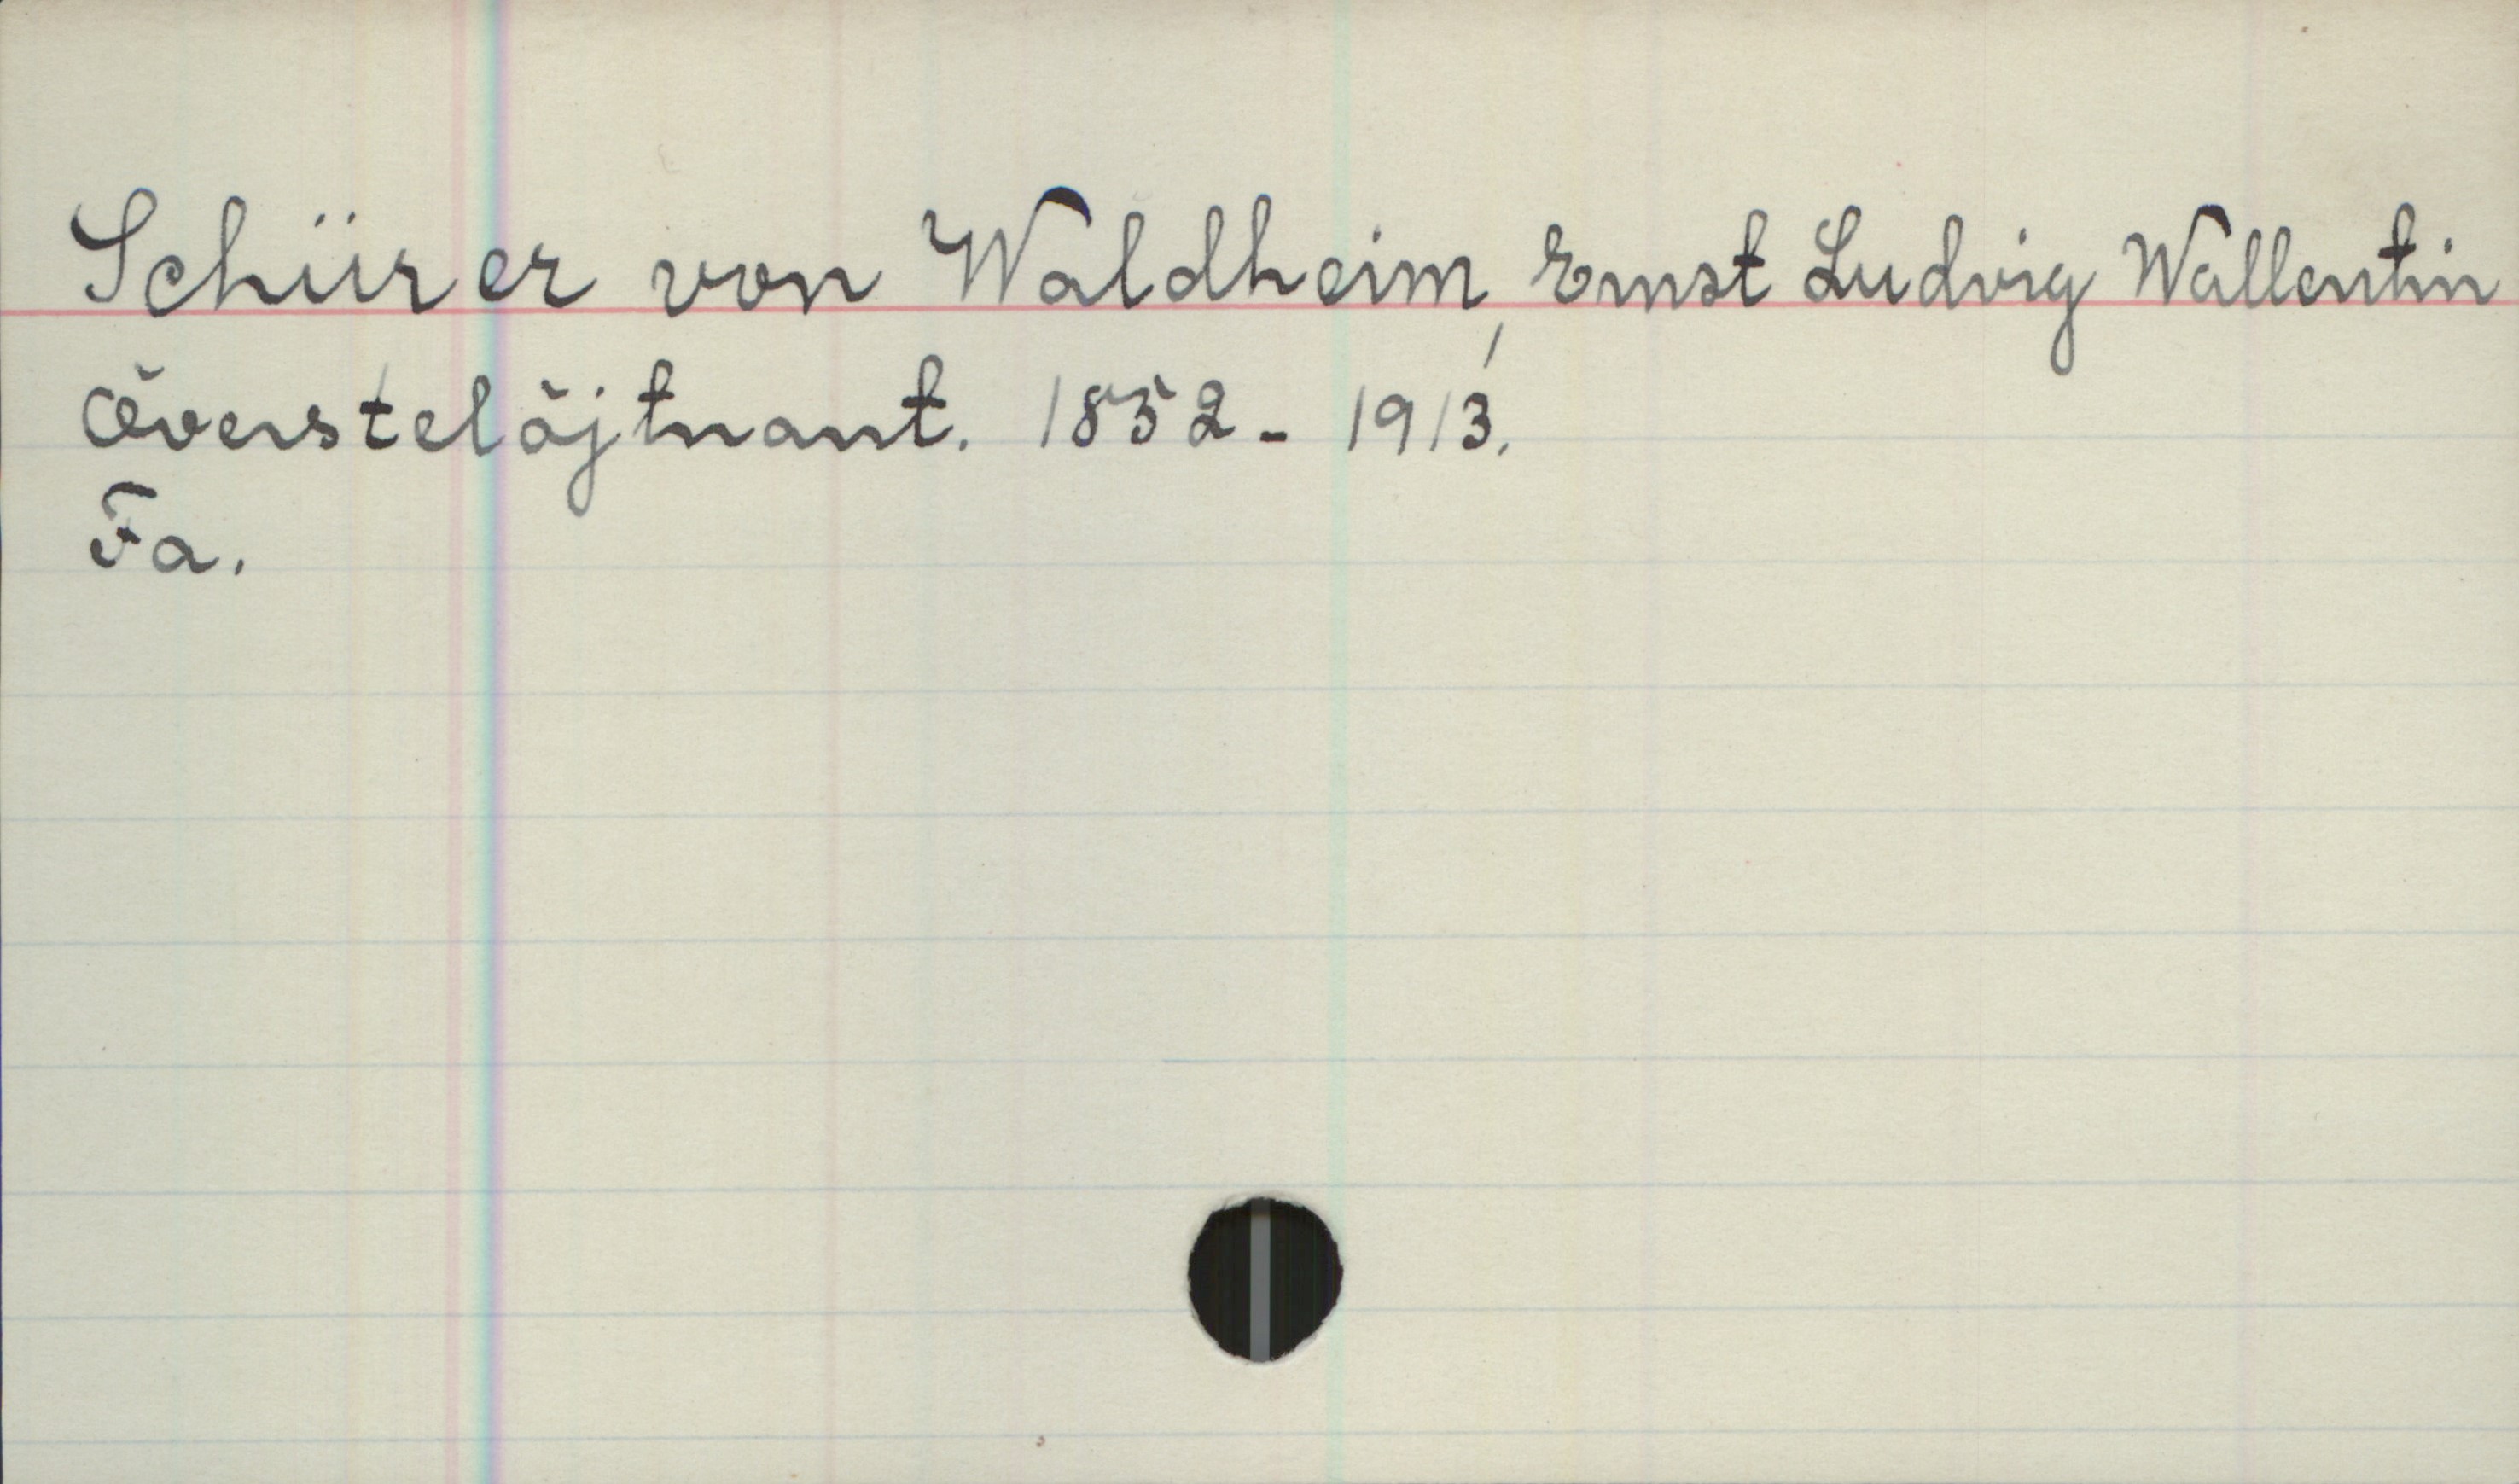 Schürer von Waldheim, Ernst Ludvig Wallentin
Överstelöjtnant. 1852 - 1913.
Fa.